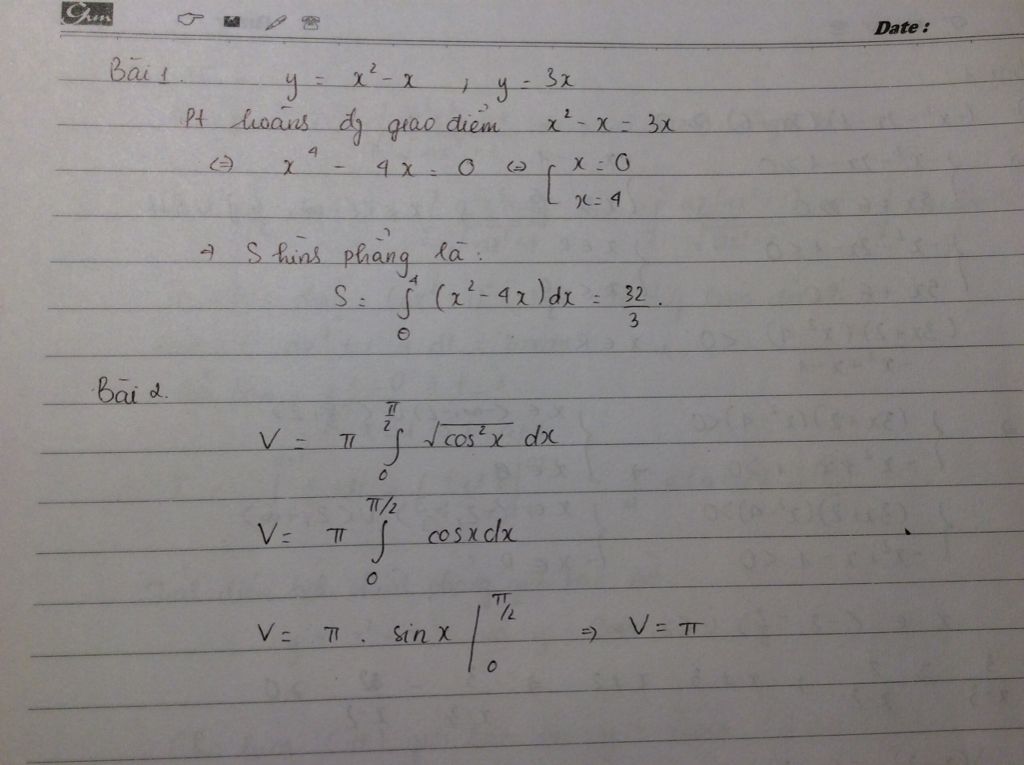 Date :
Bài 1. y = x² - x , y = 3x
Pt hoành độ giao điểm x² - x = 3x
⇔ x⁴ - 4x = 0 ⇔ [ x = 0
x = 4
→ S hình phẳng là:
S = ∫₀⁴ (x² - 4x)dx = 32/3.
Bài 2.
V = π ∫₀^{π/2} √cos²x dx
V = π ∫₀^{π/2} cosxdx
V = π . sin x |₀^{π/2} ⇒ V = π